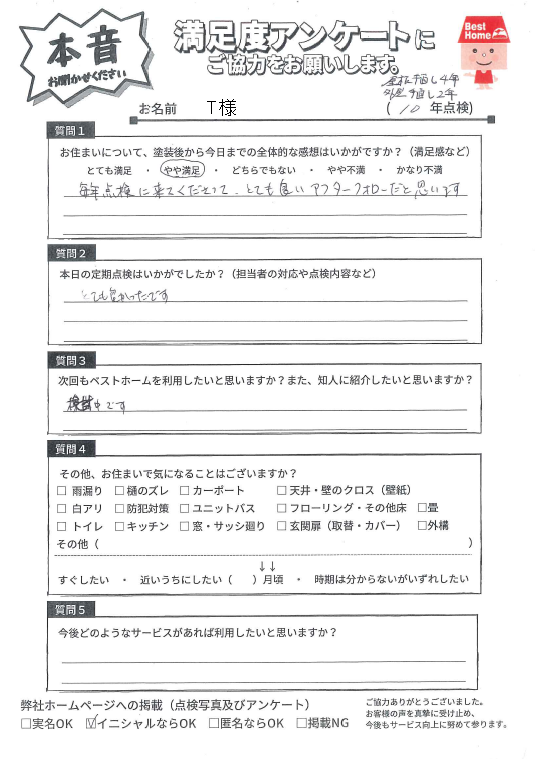 本音
お聞かせください
満足度アンケートに
ご協力をお願いします。
Best
Home
手直し4年
手直し2年
お名前 T様
( 10 年点検)
質問1
お住まいについて、塗装後から今日までの全体的な感想はいかがですか?(満足感など)
とても満足 ・ やや満足 ・ どちらでもない ・ やや不満 ・ かなり不満
毎年点検に来てくださって、とても良いアフターフォローだと思います
質問2
本日の定期点検はいかがでしたか?(担当者の対応や点検内容など)
とても良かったです
質問3
次回もベストホームを利用したいと思いますか?また、知人に紹介したいと思いますか?
検討中です
質問4
その他、お住まいで気になることはございますか?
☐ 雨漏り ☐ 樋のズレ ☐ カーポート ☐ 天井・壁のクロス(壁紙)
☐ 白アリ ☐ 防犯対策 ☐ ユニットバス ☐ フローリング・その他床 ☐畳
☐ トイレ ☐ キッチン ☐ 窓・サッシ廻り ☐ 玄関扉(取替・カバー) ☐外構
その他( )
↓↓
すぐしたい ・ 近いうちにしたい( )月頃 ・ 時期は分からないがいずれしたい
質問5
今後どのようなサービスがあれば利用したいと思いますか?
弊社ホームページへの掲載(点検写真及びアンケート)
☐実名OK ☑イニシャルならOK ☐匿名ならOK ☐掲載NG
ご協力ありがとうございました。
お客様の声を真摯に受け止め、
今後もサービス向上に努めて参ります。